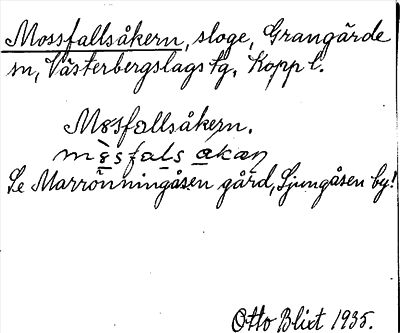 Mossfallsåkern, sloge, Grangärde
sn, Västerbergslags tg, Kopp l.
Mosfallsåkern.
Se Marrönningåsen gård, Ljungåsen by!
Otto Blixt 1935.